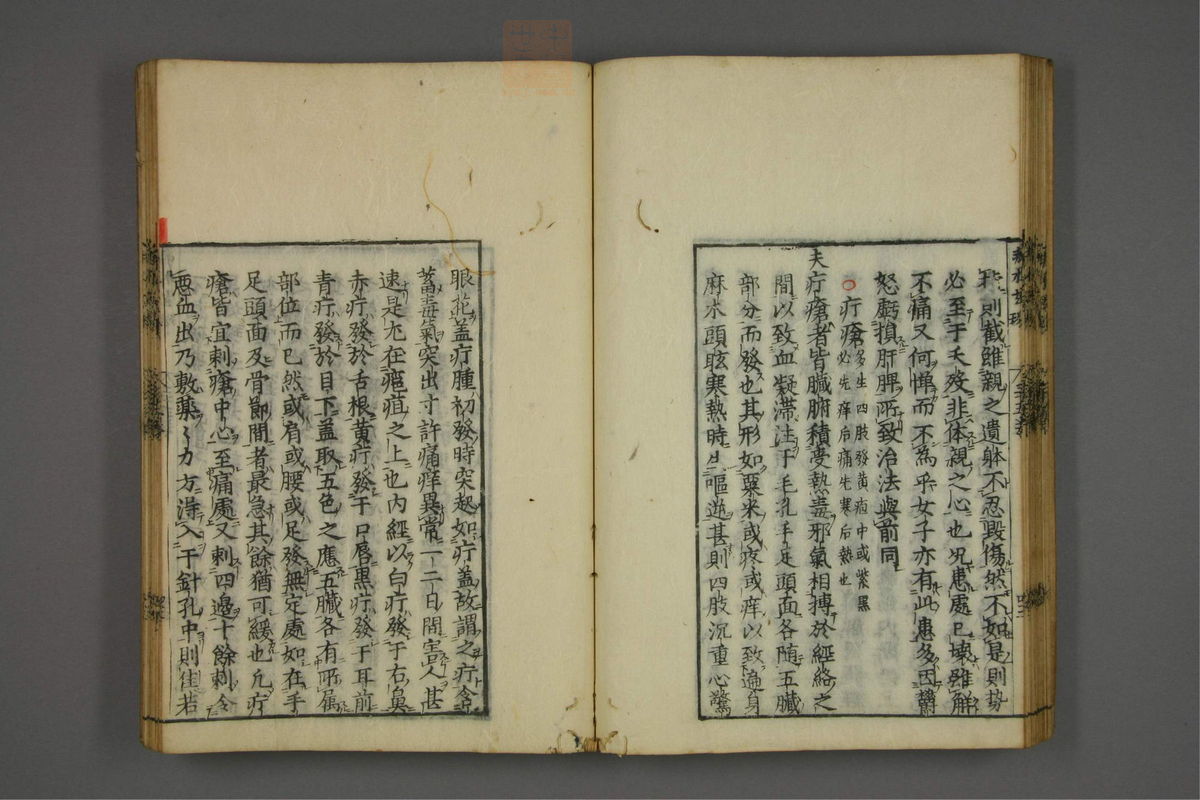 則截雖親之遺躰不忍毀傷然不如是則势
必至于夭殁非体親之心也况患處已壞雖解
不痛又何惮而不為乎女子亦有此患多因鬱
怒虧損肝脾所致治法與前同
○疔瘡多生四肢發黄疱中或紫黑
必先痒后痛先寒后熱也
夫疔瘡者皆臟腑積受熱毒邪氣相搏於經絡之
間以致血凝滞注于毛孔手足頭面各随五臟
部分而發也其形如粟米或疼或痒以致遍身
麻木頭眩寒熱時生嘔逆甚則四肢沉重心驚
眼花盖疔腫初發時突起如疔蓋故謂之疔含
蓄毒氣突出寸許痛痒異常一二日間害人甚
速是尤在疽之上也内經以白疔發于右鼻
赤疔發於舌根黄疔發于口唇黒疔發于耳前
青疔發於目下盖取五色之應五臟各有所属
部位而已然或肩或腰或足發無定處如在手
足頭面及骨節間者最急其餘猶可緩也凢疔
瘡皆宜刺瘡中心至痛處又刺四邊十餘刺令
悪血出乃敷薬〻力方淂入于針孔中則佳若